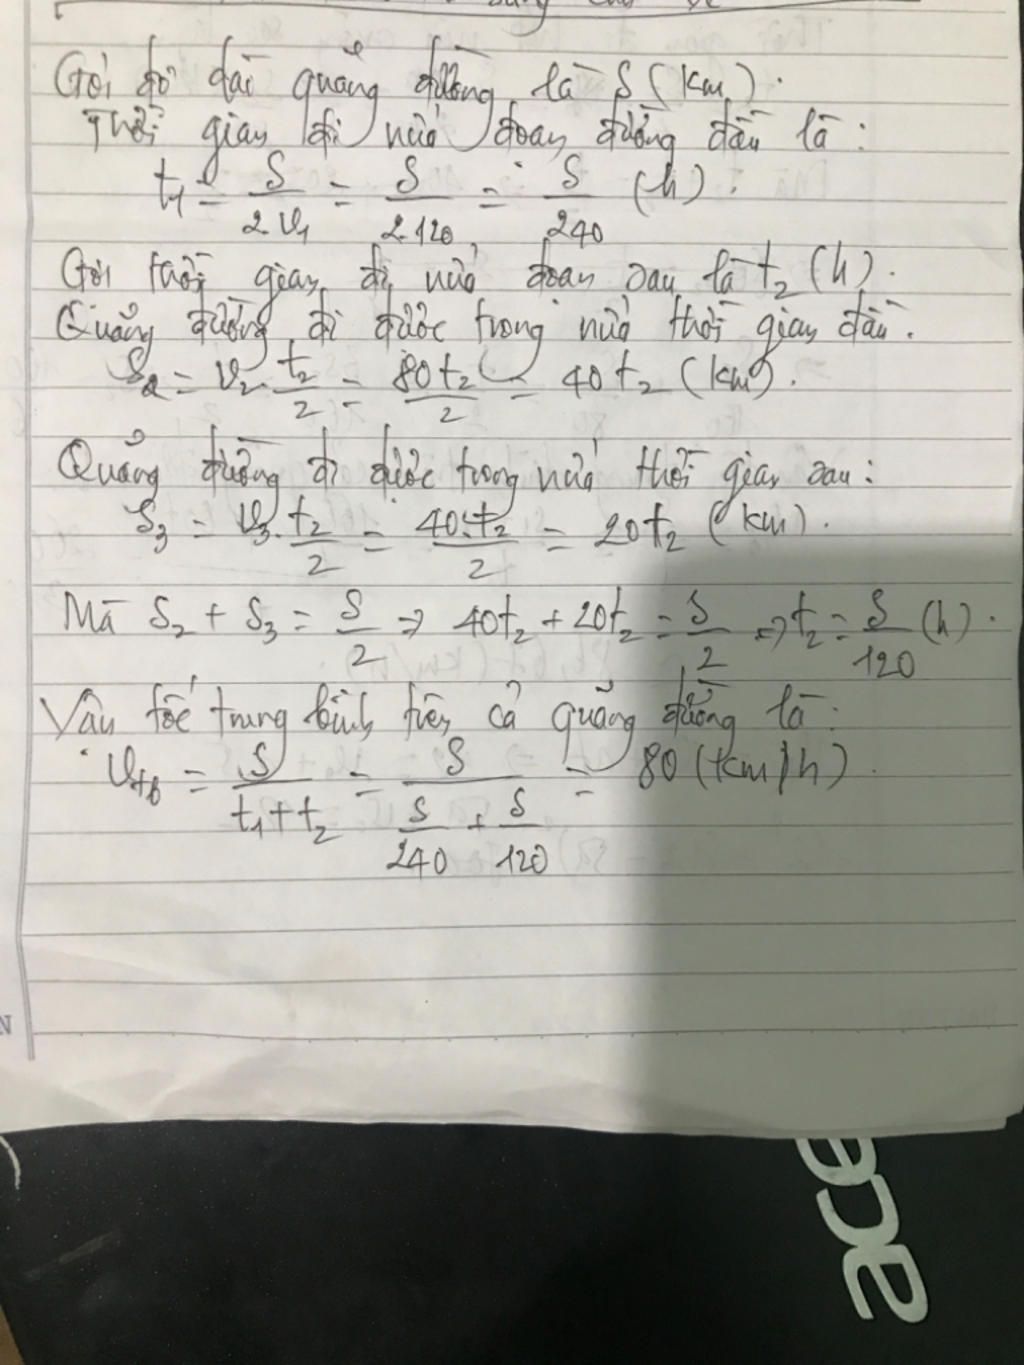 Gọi độ dài quãng đường là S (km).
Thời gian đi nửa đoạn đường đầu là:
t₁ = S/2.v₁ = S/2.120 = S/240 (h).
Gọi thời gian đi nửa đoạn sau là t₂ (h).
Quãng đường đi được trong nửa thời gian đầu.
S₂ = v₂. t₂/2 = 80t₂/2 = 40t₂ (km).
Quãng đường đi được trong nửa thời gian sau:
S₃ = v₃. t₂/2 = 40.t₂/2 = 20t₂ (km).
Mà S₂ + S₃ = S/2 => 40t₂ + 20t₂ = S/2 => t₂ = S/120 (h).
Vận tốc trung bình trên cả quãng đường là:
vtb = S/t₁+t₂ = S/S/240 + S/120 = 80 (km/h).
N
acer